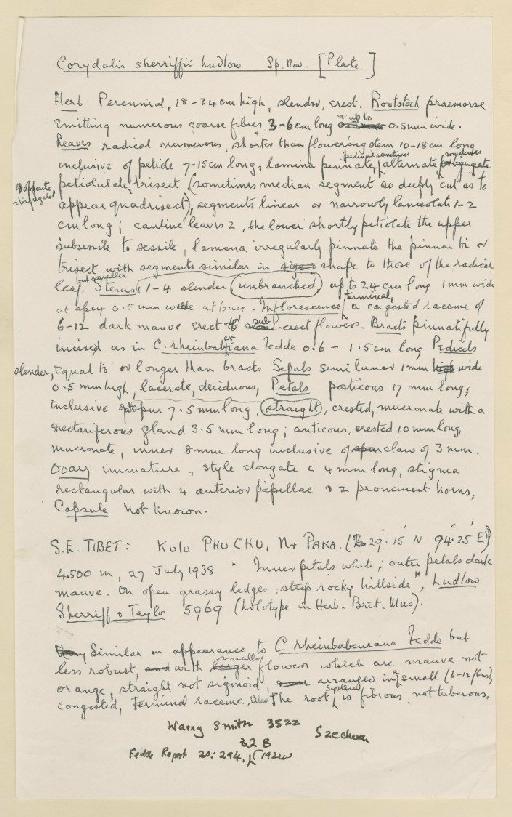 Corydalis sherriffii Ludlow Sp. Nov. [Plate]
Herb Perennial, 18-24 cm high, slender, erect. Rootstock praemorse
emitting numerous coarse fibres 3-6 cm long 0.5 mm wide.
Leaves radical numerous, shorter than flowering stem 10-18 cm long
inclusive of petiole 7-15 cm long, lamina pinnate, alternate
petiolulate, trisect (sometimes median segment so deeply cut as to
appear quadrisect), segments linear or narrowly lanceolate 1-2
cm long; cauline leaves 2, the lower shortly petiolate the upper
subsessile to sessile, lamina irregularly pinnate the pinnae bi or
trisect with segments similar in shape to those of the radical
leaf Stems 1-4 slender (unbranched) up to 24 cm long 1 mm wide
at apex 0.5 mm wide at base. Inflorescence a congested raceme of
6-12 dark mauve erect to sub erect flowers. Bracts pinnatifidly
incised as in C. rheinbabeniana Fedde 0.6-1.5 cm long Pedicels
slender, equal to or longer than bracts Sepals semi lunar 1 mm wide
0.5 mm high, lacerate, deciduous, Petals posticous 17 mm long,
inclusive spur 7.5 mm long (straight), crested, mucronate with a
nectariferous gland 3.5 mm long; anticous, crested 10 mm long,
mucronate, inner 8 mm long inclusive of claw of 3 mm.
Ovary immature, style elongate c 4 mm long, stigma
rectangular with 4 anterior papillae & 2 prominent horns,
Capsule not known.
S.E. TIBET: Kulu PHU CHU, Nr PAKA. (29.15 N 94.25 E)
4,500 m, 27 July 1938 "Inner petals white; outer petals dark
mauve. On open grassy ledge, steep rocky hillside", Ludlow
Sherriff & Taylor 5969 (holotype in Herb. Brit. Mus).
Similar in appearance to C. rheinbabeniana Fedde but
less robust, with smaller flowers which are mauve not
orange, straight not sigmoid arranged in small (6-12 flrs)
congested, terminal raceme. The root system is fibrous not tuberous.
Harry Smith 3522 Szechuan
32 B
Fedde Report 20: 294. 1924